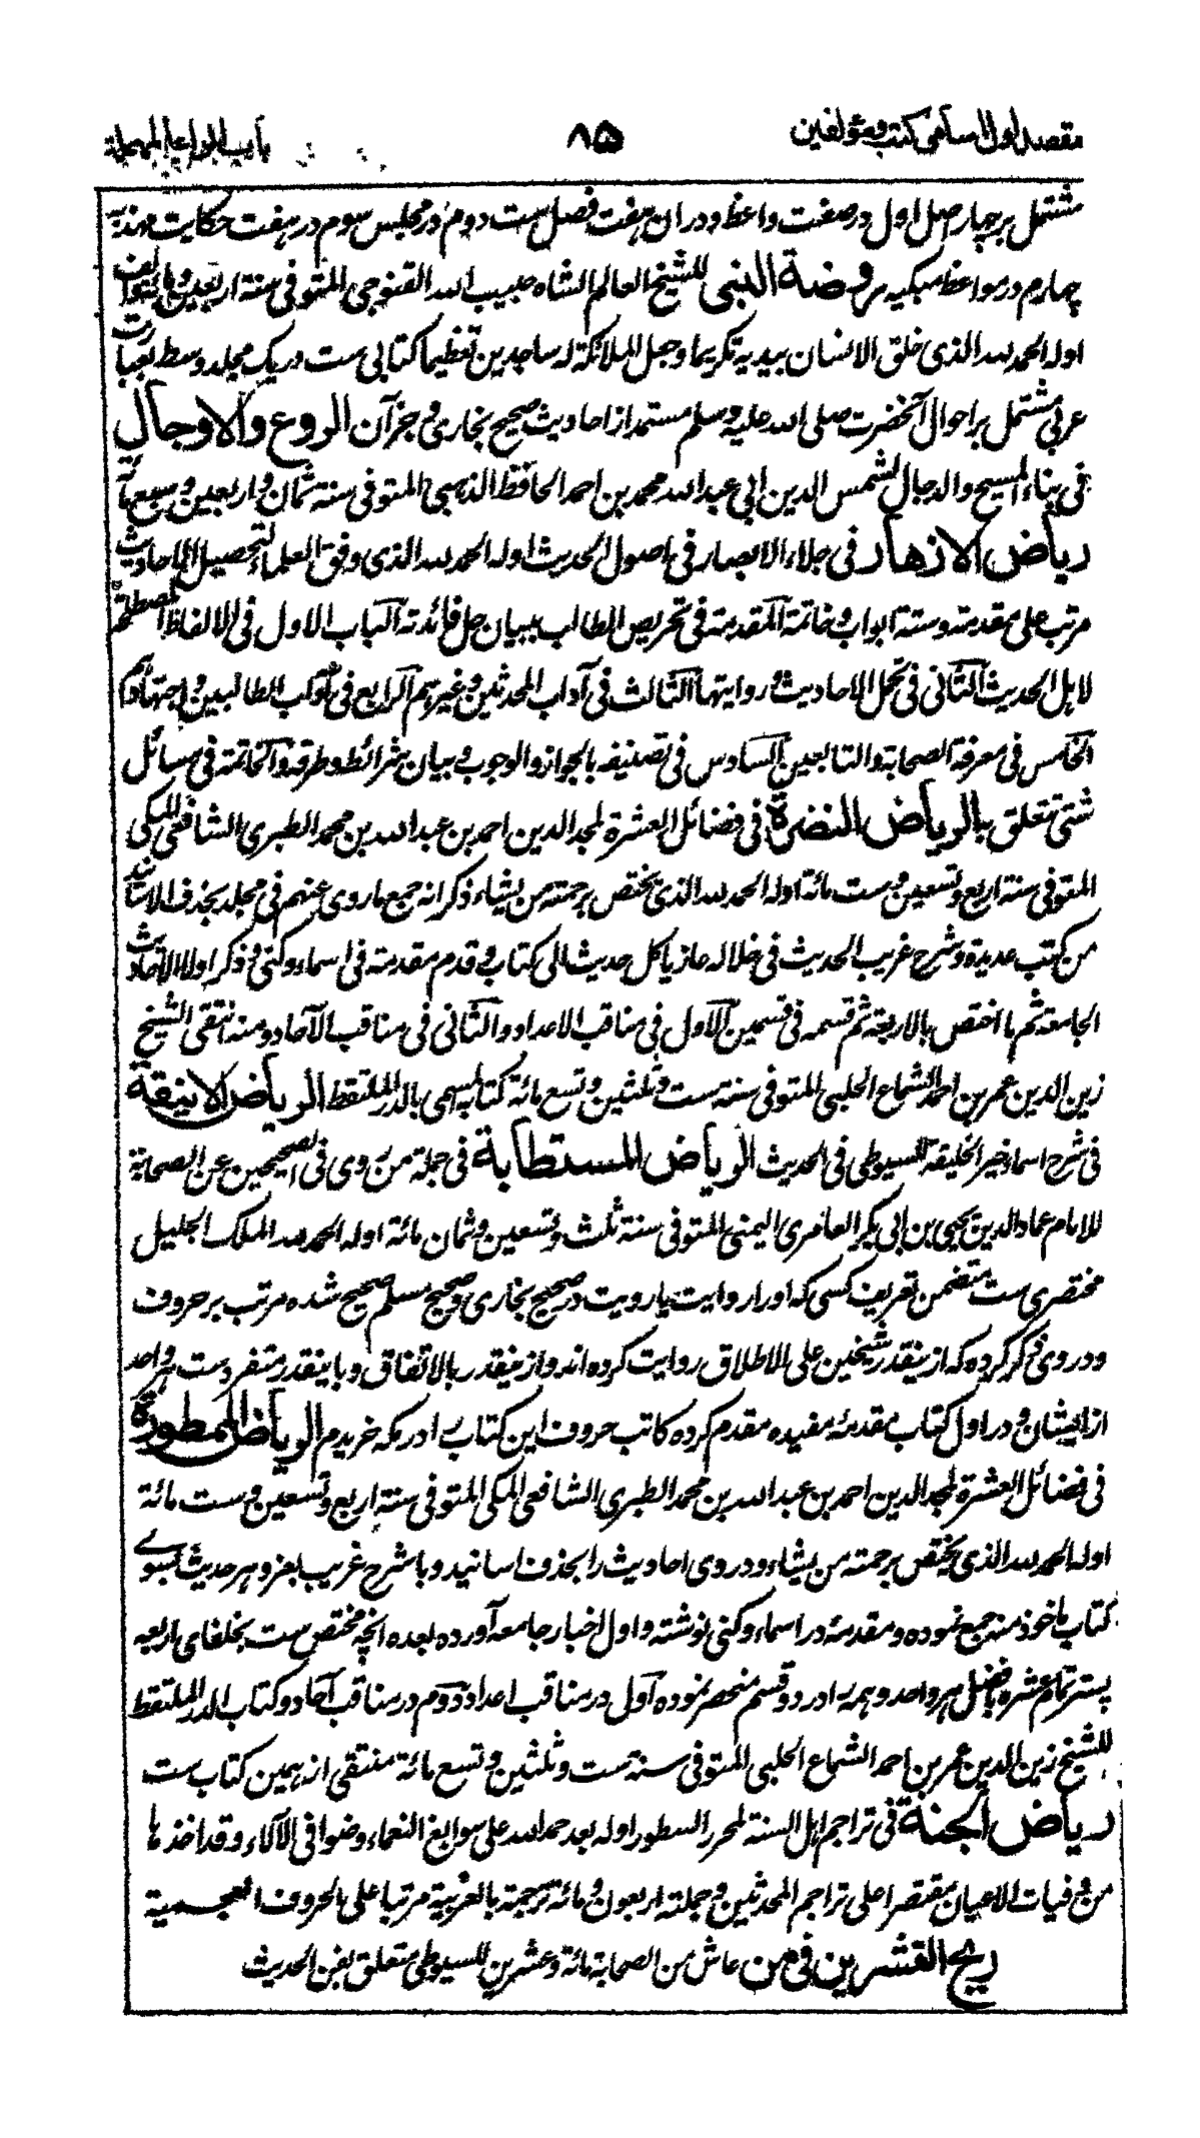 مقصد اول در اسامی کتب و مؤلفین
۸۵
باب الراء المهملة
مشتمل بر چهار اصل اول در صفت واعظ و در ان هفت فصل ست دوم در مجلس سوم در هفت حکایت مهذبه
چهارم در مواعظ مبکیه روضة النبی للشیخ العالم الشاه حبیب الله القنوجی المتوفی سنة اربعین و مائة و الف
اوله الحمد لله الذی خلق الانسان بیدیه تکریما وجعل الملائکة له ساجدین تعظیما کتابی ست در یک مجلد وسط بعبارت
عربی مشتمل بر احوال آنحضرت صلی الله علیه وسلم مستمد از احادیث صحیح بخاری و جز آن الروع والاوجال
فی بناء المسیح والدجال لشمس الدین ابی عبدالله محمد بن احمد الحافظ الذهبی المتوفی سنة ثمان و اربعین و سبع مائة
ریاض الازهار فی جلاء الابصار فی اصول الحدیث اوله الحمد لله الذی وفق العلماء لتحصیل الاحادیث
مرتب علی مقدمة وستة ابواب و خاتمة المقدمة فی تحریص الطالب ببیان جل فائدته الباب الاول فی الالفاظ المصطلحة
لاهل الحدیث الثانی فی تحمل الاحادیث و روایتها الثالث فی آداب المحدثین و غیرهم الرابع فی الطالبین و اجتهادهم
الخامس فی معرفة الصحابة والتابعین السادس فی تصنیفه بالجواز والوجوب و بیان شرائط وطرقه والخاتمة فی مسائل
شتی تتعلق به الریاض النضرة فی فضائل العشرة لمجد الدین احمد بن عبدالله بن محمد الطبری الشافعی المکی
المتوفی سنة اربع و تسعین و ست مائة اوله الحمد لله الذی یختص برحمته من یشاء ذکر انه جمع ما روی عنهم فی مجلد بحذف الاسانید
من کتب عدیدة وشرح غریب الحدیث فی خلاله عازیا کل حدیث الی کتاب و قدم مقدمة فی اسماء وکنی و ذکر اولا الاحادیث
الجامعة ثم ما اختص بالاربعة ثم قسمه فی قسمین الاول فی مناقب الاعداد والثانی فی مناقب الآحاد ومنه انتقی الشیخ
زین الدین عمر بن احمد الشماع الحلبی المتوفی سنة ست و ثلثین و تسع مائة کتابه المسمی بالدر الملتقط الریاض الانیقة
فی شرح اسماء خیر الخلیقة للسیوطی فی الحدیث الریاض المستطابة فی جملة من روی فی الصحیحین عن الصحابة
للامام عماد الدین یحیی بن ابی بکر العامری الیمنی المتوفی سنة ثلث و تسعین و ثمان مائة اوله الحمد لله الملک الجلیل
مختصری ست متضمن تعریف کسی که او را روایت یا رویت در صحیح بخاری و صحیح مسلم صحیح شده مرتب بر حروف
و در وی ذکر کرده که ازینقدر شیخین علی الاطلاق روایت کرده اند و ازینقدر بالاتفاق و باینقدر متفرد ست هر واحد
از ایشان و در اول کتاب مقدمهٔ مفیده مقدم کرده کاتب حروف این کتاب را در مکه خریدم الریاض الممطورة
فی فضائل العشرة لمجد الدین احمد بن عبدالله بن محمد الطبری الشافعی المکی المتوفی سنة اربع و تسعین و ست مائة
اوله الحمد لله الذی یختص برحمته من یشاء و در وی احادیث را بحذف اسانید و با شرح غریب بعزو هر حدیث بسوے
کتاب ماخوذ منه جمع نموده و مقدمهٔ در اسماء وکنی نوشته و اول اخبار جامعه آورده بعده انچه مختص ست بخلفای اربعه
پستر تمام عشره با فضل هر واحد و همه را در دو قسم منحصر نموده اول در مناقب اعداد دوم در مناقب آحاد و کتاب الدر الملتقط
للشیخ زین الدین عمر بن احمد الشماع الحلبی المتوفی سنة ست و ثلثین و تسع مائة منتقی از همین کتاب ست
ریاض الجنة فی تراجم اهل السنة لمحرر السطور اوله بعد حمد الله علی سوابغ النعماء و ضوافی الآلاء و قد اخذ ها
من وفیات الاعیان مقتصرا علی تراجم المحدثین و جملته اربعون و مائة ترجمة بالعربیة مرتبا علی الحروف المعجمیة
ریح القشرین فی من عاش من الصحابة مائة وعشرین للسیوطی متعلق بفن الحدیث